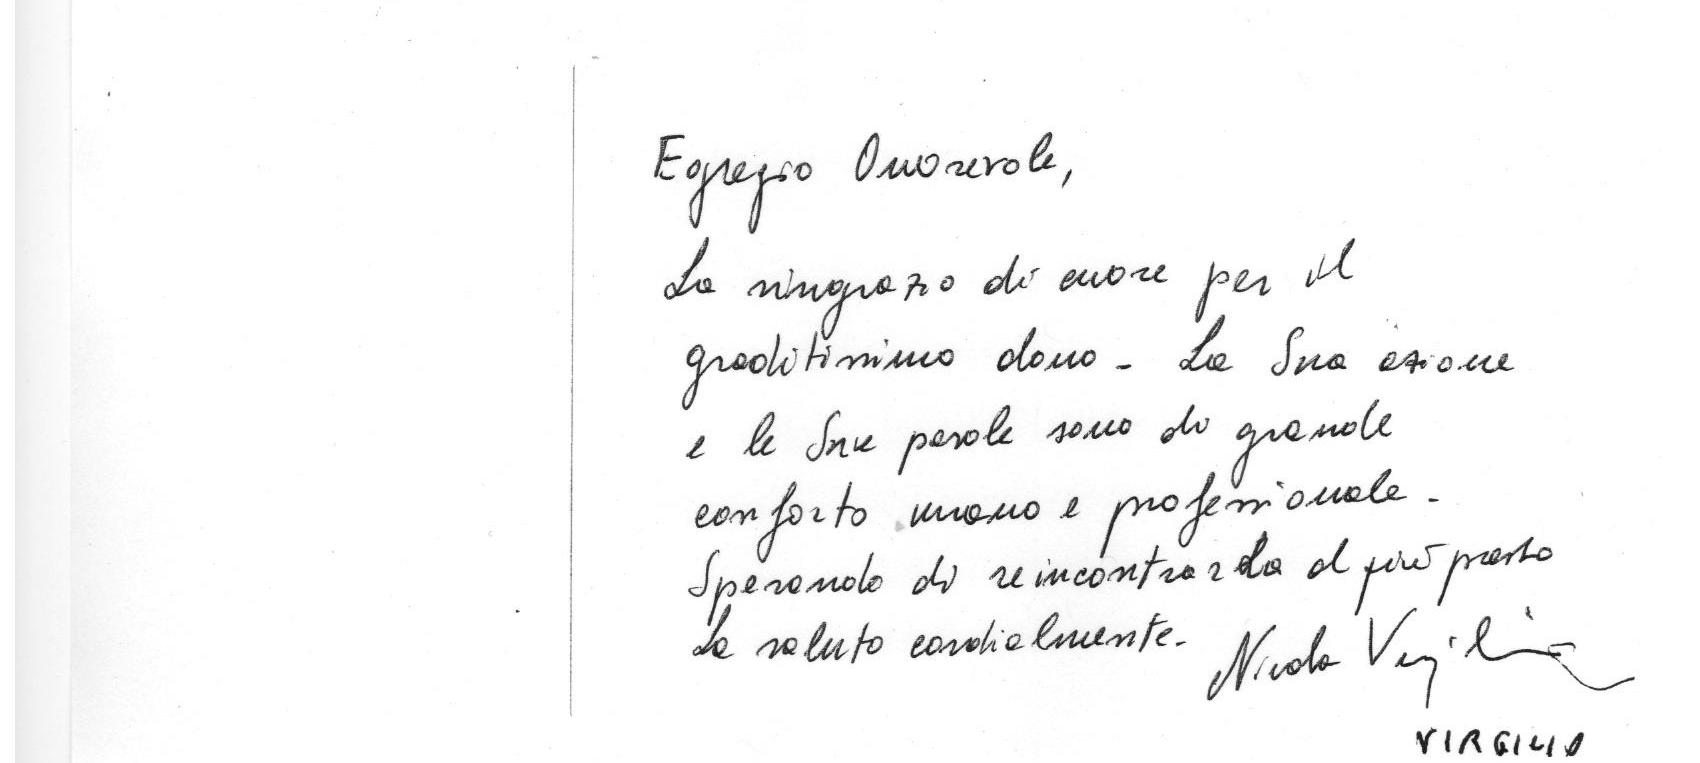 Egregio Onorevole,
La ringrazio di cuore per il
graditissimo dono - La Sua azione
e le Sue parole sono di grande
conforto umano e professionale -
Sperando di reincontrarLa al più presto
La saluto cordialmente - Nicola Virgilio
VIRGILIO